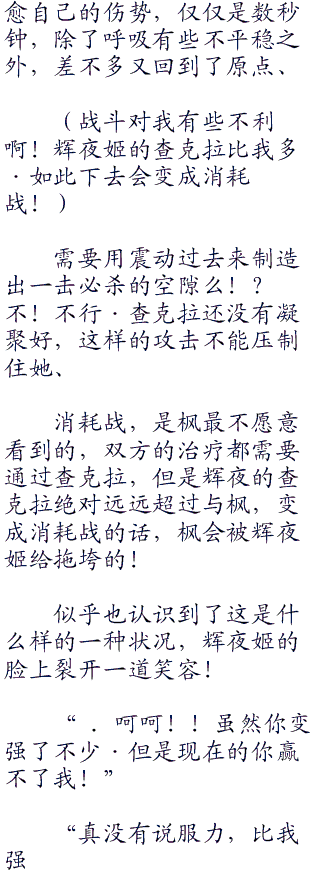 愈自己的伤势，仅仅是数秒
钟，除了呼吸有些不平稳之
外，差不多又回到了原点、
（战斗对我有些不利
啊！辉夜姬的查克拉比我多
·如此下去会变成消耗
战！）
需要用震动过去来制造
出一击必杀的空隙么！？
不！不行·查克拉还没有凝
聚好，这样的攻击不能压制
住她、
消耗战，是枫最不愿意
看到的，双方的治疗都需要
通过查克拉，但是辉夜的查
克拉绝对远远超过与枫，变
成消耗战的话，枫会被辉夜
姬给拖垮的！
似乎也认识到了这是什
么样的一种状况，辉夜姬的
脸上裂开一道笑容！
“．呵呵！！虽然你变
强了不少·但是现在的你赢
不了我！”
“真没有说服力，比我
强